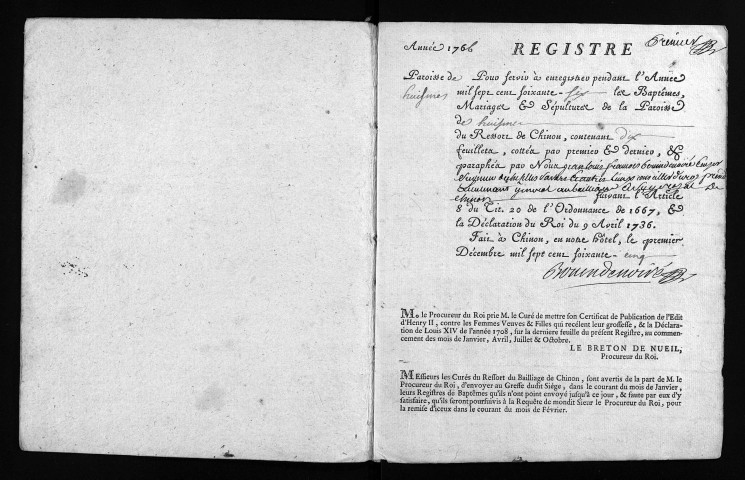 Année 1766 REGISTRE Premier
Paroisse de huismes
Pour servir à enregistrer pendant l'Année
mil sept cent soixante-six les Baptêmes,
Mariages & Sépultures de la Paroisse
de huismes
du Ressort de Chinon, contenant dix
feuillets, cottés par premier & dernier, &
paraphés par Nous Jean Louis François
Seigneur autres conseiller du roy
Lieutenant général au bailliage de
chinon suivant l'Article
8 du Tit. 20 de l'Ordonnance de 1667, &
la Déclaration du Roi du 9 Avril 1736.
Fait à Chinon, en notre hôtel, le premier
Décembre mil sept cent soixante-cinq
M. le Procureur du Roi prie M. le Curé de mettre son Certificat de Publication de l'Edit
d'Henry II, contre les Femmes Veuves & Filles qui recélent leur grossesse, & la Déclara-
tion de Louis XIV de l'année 1708, sur la derniere feuille du présent Registre, au commen-
cement des mois de Janvier, Avril, Juillet & Octobre.
LE BRETON DE NUEIL,
Procureur du Roi.
MEssieurs les Curés du Ressort du Bailliage de Chinon, sont avertis de la part de M. le
Procureur du Roi, d'envoyer au Greffe dudit Siége, dans le courant du mois de Janvier,
leurs Registres de Baptêmes qu'ils n'ont point envoyé jusqu'à ce jour, & faute par eux d'y
satisfaire, qu'ils seront poursuivis à la Requête de mondit Sieur le Procureur du Roi, pour
la remise d'iceux dans le courant du mois de Février.